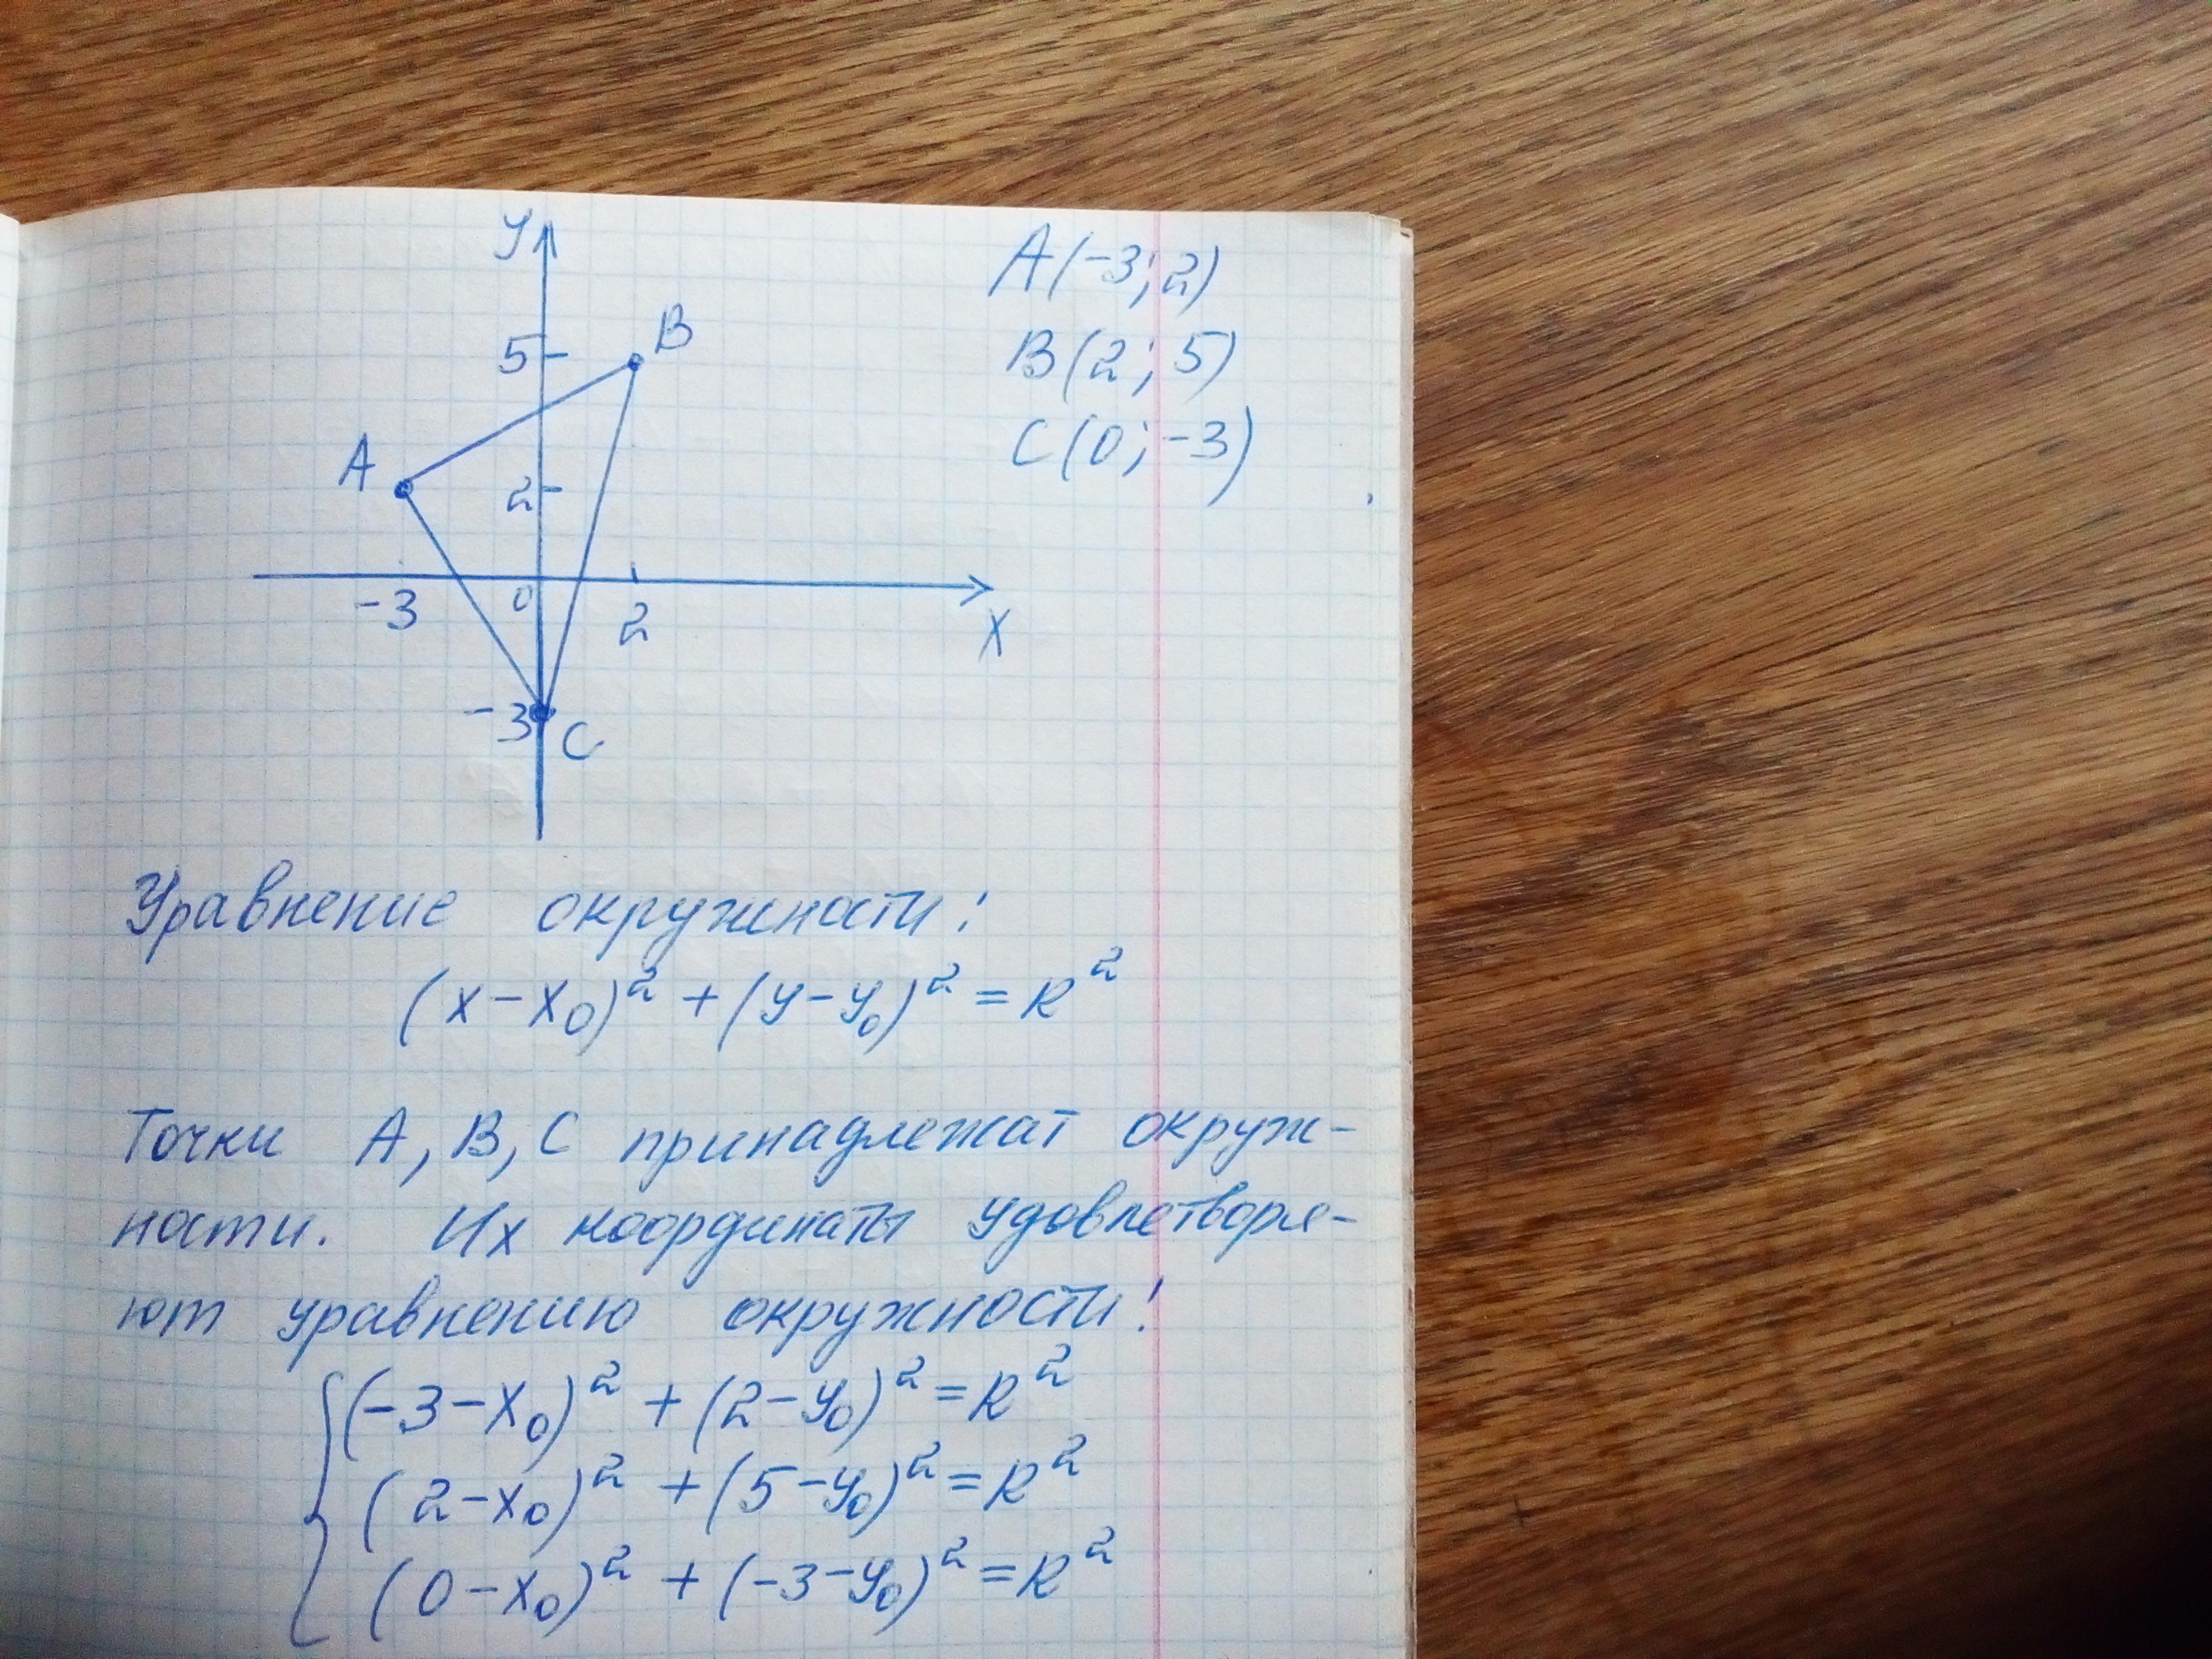 y
5
B
A
2
-3
0
2
x
-3
C
A(-3; 2)
B(2; 5)
C(0; -3)
Уравнение окружности:
(x-x₀)² + (y-y₀)² = R²
Точки A, B, C принадлежат окруж-
ности. Их координаты удовлетворя-
ют уравнению окружности:
(-3-x₀)² + (2-y₀)² = R²
(2-x₀)² + (5-y₀)² = R²
(0-x₀)² + (-3-y₀)² = R²